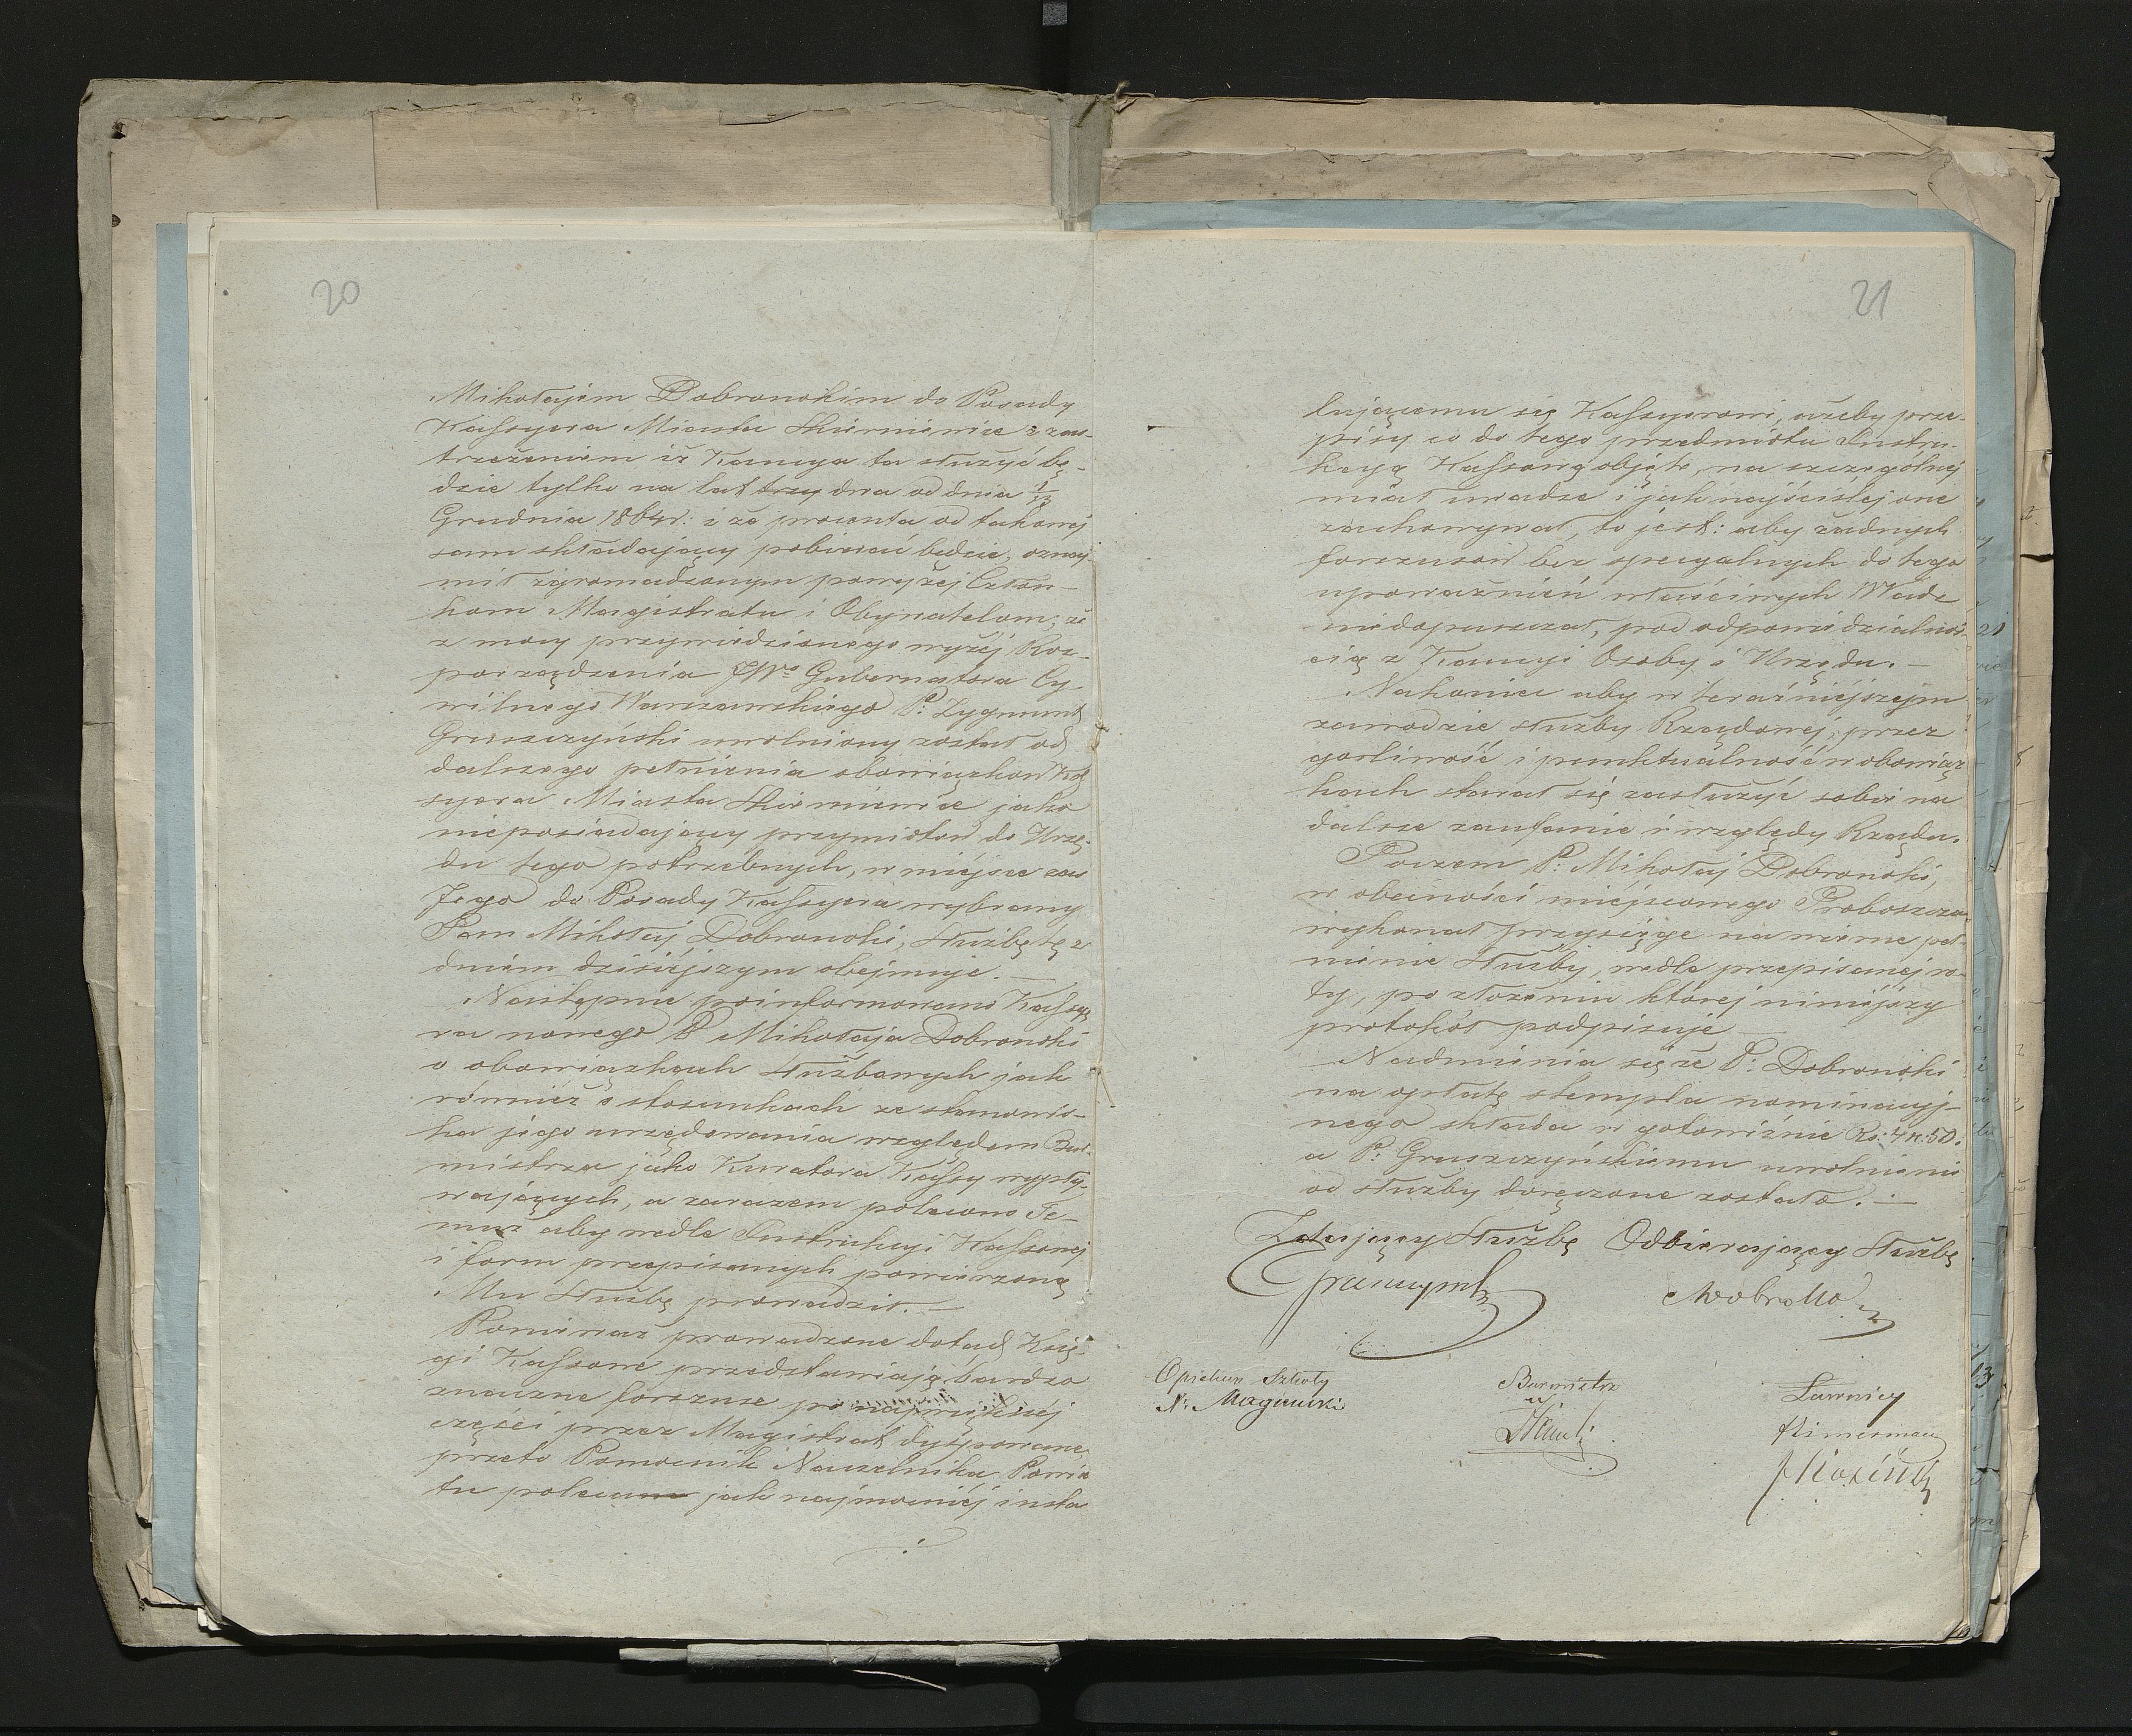 20
Mikołajem Dobronokim do Posady
Kassyera Miasta Skierniewic z zas-
trzeżeniem iż Kaucya ta służyć bę-
dzie tylko na lat trzy dwa od dnia 1/13
Grudnia 1864r: i że procenta od takowej
sam składający pobierać będzie, oznaj-
mił zgromadzonym powyżej Człon-
kom Magistratu i Obywatelom, że
z mocy przywiedzionego wyżej Roz-
porządzenia JWo Gubernatora Cy-
wilnego Warszawskiego P: Zygmunt
Gruszczyński uwolniony został od
dalszego pełnienia obowiązków Kas
syera Miasta Skierniewic jako
nieposiadający przymiotów do Urzę-
du tego potrzebnych, w miejsce zaś
Jego do Posady Kassyera wybrany
Pan Mikołaj Dobronoki, służbę tę z
dniem dzisiejszym obejmuje. —
Następnie poinformowano Kassye
ra nowego P Mikołaja Dobronoki
o obowiązkach służbowych jak
również o stosunkach ze stanowis-
ka jego urzędowania względem Bur-
mistrza jako Kuratora Kassy wypły-
wających, a zarazem polecono Te-
muż aby wedle Instrukcyi Kassowej
i form przepisanych powierzoną
Mu służbę prowadził. —
Ponieważ prowadzone dotąd Księ-
gi Kassowe przedstawiają bardzo
znaczne forszusse po największej
części przez Magistrat dysponowane,
przeto Pomocnik Naczelnika Powia
tu poleca jak najmocniej insta
21
lującemu się Kassyerowi, ażeby prze-
pisy co do tego przedmiotu Instru-
kcyą Kassową objęte, na szczególnej
miał uwadze i jak najściślej one
zachowywał, to jest: aby żadnych
forszusów bez specyalnych do tego
upoważnień właściwych Władz
niedopuszczał, pod odpowiedzialnoś-
cią z Kaucyi Osoby i Urzędu. —
Nakoniec aby w teraźniejszym
zawodzie służby Rządowej, przez
gorliwość i punktualność w obowiąz
kach starał się zasłużyć sobie na
dalsze zaufanie i względy Rządu.
Poczem P: Mikołaj Dobronoki,
w obecności miejscowego Proboszcza
wykonał przysięgę na wierne peł-
nienie służby, wedle przepisanej ro-
ty, po złożeniu której niniejszy
protokół podpisuje —
Nadmienia się że P: Dobronoki
na opłatę stempla nominacyj-
nego składa w gotowiźnie Rs: 4 k: 50.
a P: Gruszczyńskiemu uwolnienie
od służby doręczone zostało. —
Zdający służbę Odbierający służbę
Opiekun Szkoły Burmistrz Ławnicy